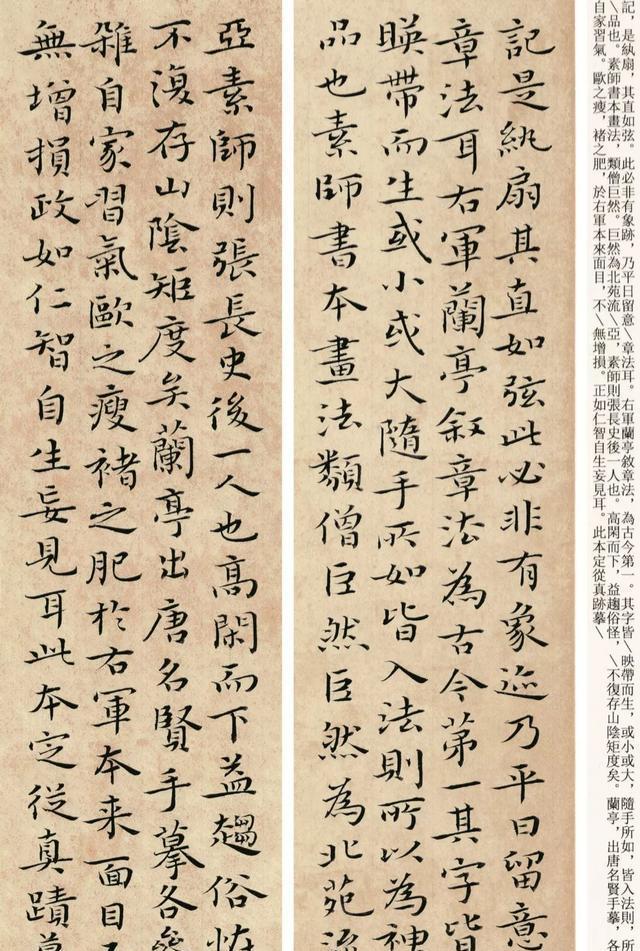 記，是紈扇，其直如弦。此必非有象跡，乃平日留意＼章法耳。右軍蘭亭敘章法，為古今第一。其字皆＼映帶而生，或小或大，隨手所如，皆入法則，所
＼品也。素師書本畫法，類僧巨然。巨然為北苑流＼亞，素師則張長史後一人也。高閑而下，益趨俗怪，＼不復存山陰矩度矣。蘭亭，出唐名賢手摹，各
自家習氣。歐之瘦，褚之肥，於右軍本來面目，不＼無增損。正如仁智自生妄見耳。此本定從真跡摹＼
記是紈扇其直如弦此必非有象迹乃平日留意
章法耳右軍蘭亭叙章法為古今第一其字皆
暎帶而生或小或大隨手所如皆入法則所以為神
品也素師書本畫法類僧巨然巨然為北苑流
亞素師則張長史後一人也高閑而下益趨俗恠
不復存山陰矩度矣蘭亭出唐名賢手摹各參
雜自家習氣歐之瘦褚之肥於右軍本来面目不
無增損政如仁智自生妄見耳此本定從真蹟摹